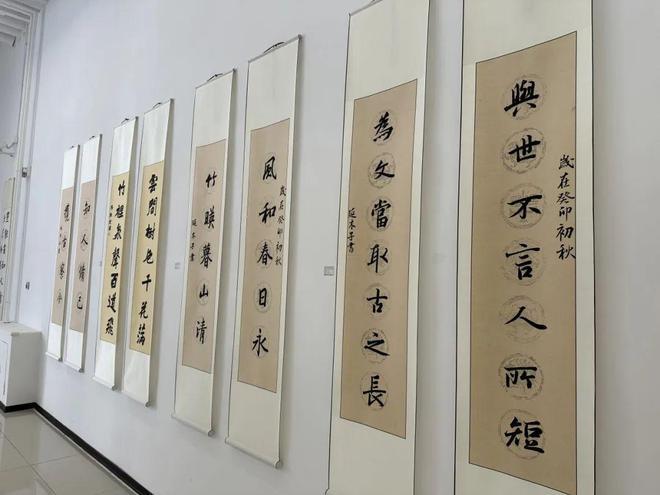 與世不言人所短
歲在癸卯初秋
為文當取古之長
延木子書
風和春日永
歲在癸卯初秋
竹暎暮山清
延木子書
雲間樹色千花滿
竹裡泉聲百道飛
知人己
古